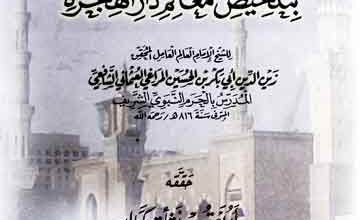 بتلخيص معالم دار الهجرة
للشيخ الإمام العالم العامل المحقق
زين الدين أبي بكر بن الحسين المراغي العثماني الشافعي
المدرس بالحرم النبوي الشريف
المتوفى سنة ٨١٦ هـ / رحمه الله
حققه